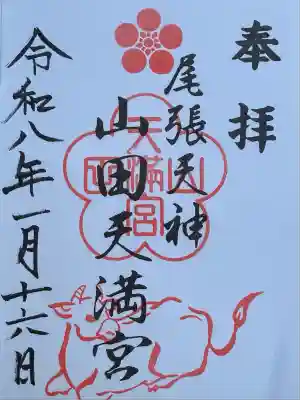 奉拝
尾張天神
山田天満宮
山田天満宮
令和八年一月十六日